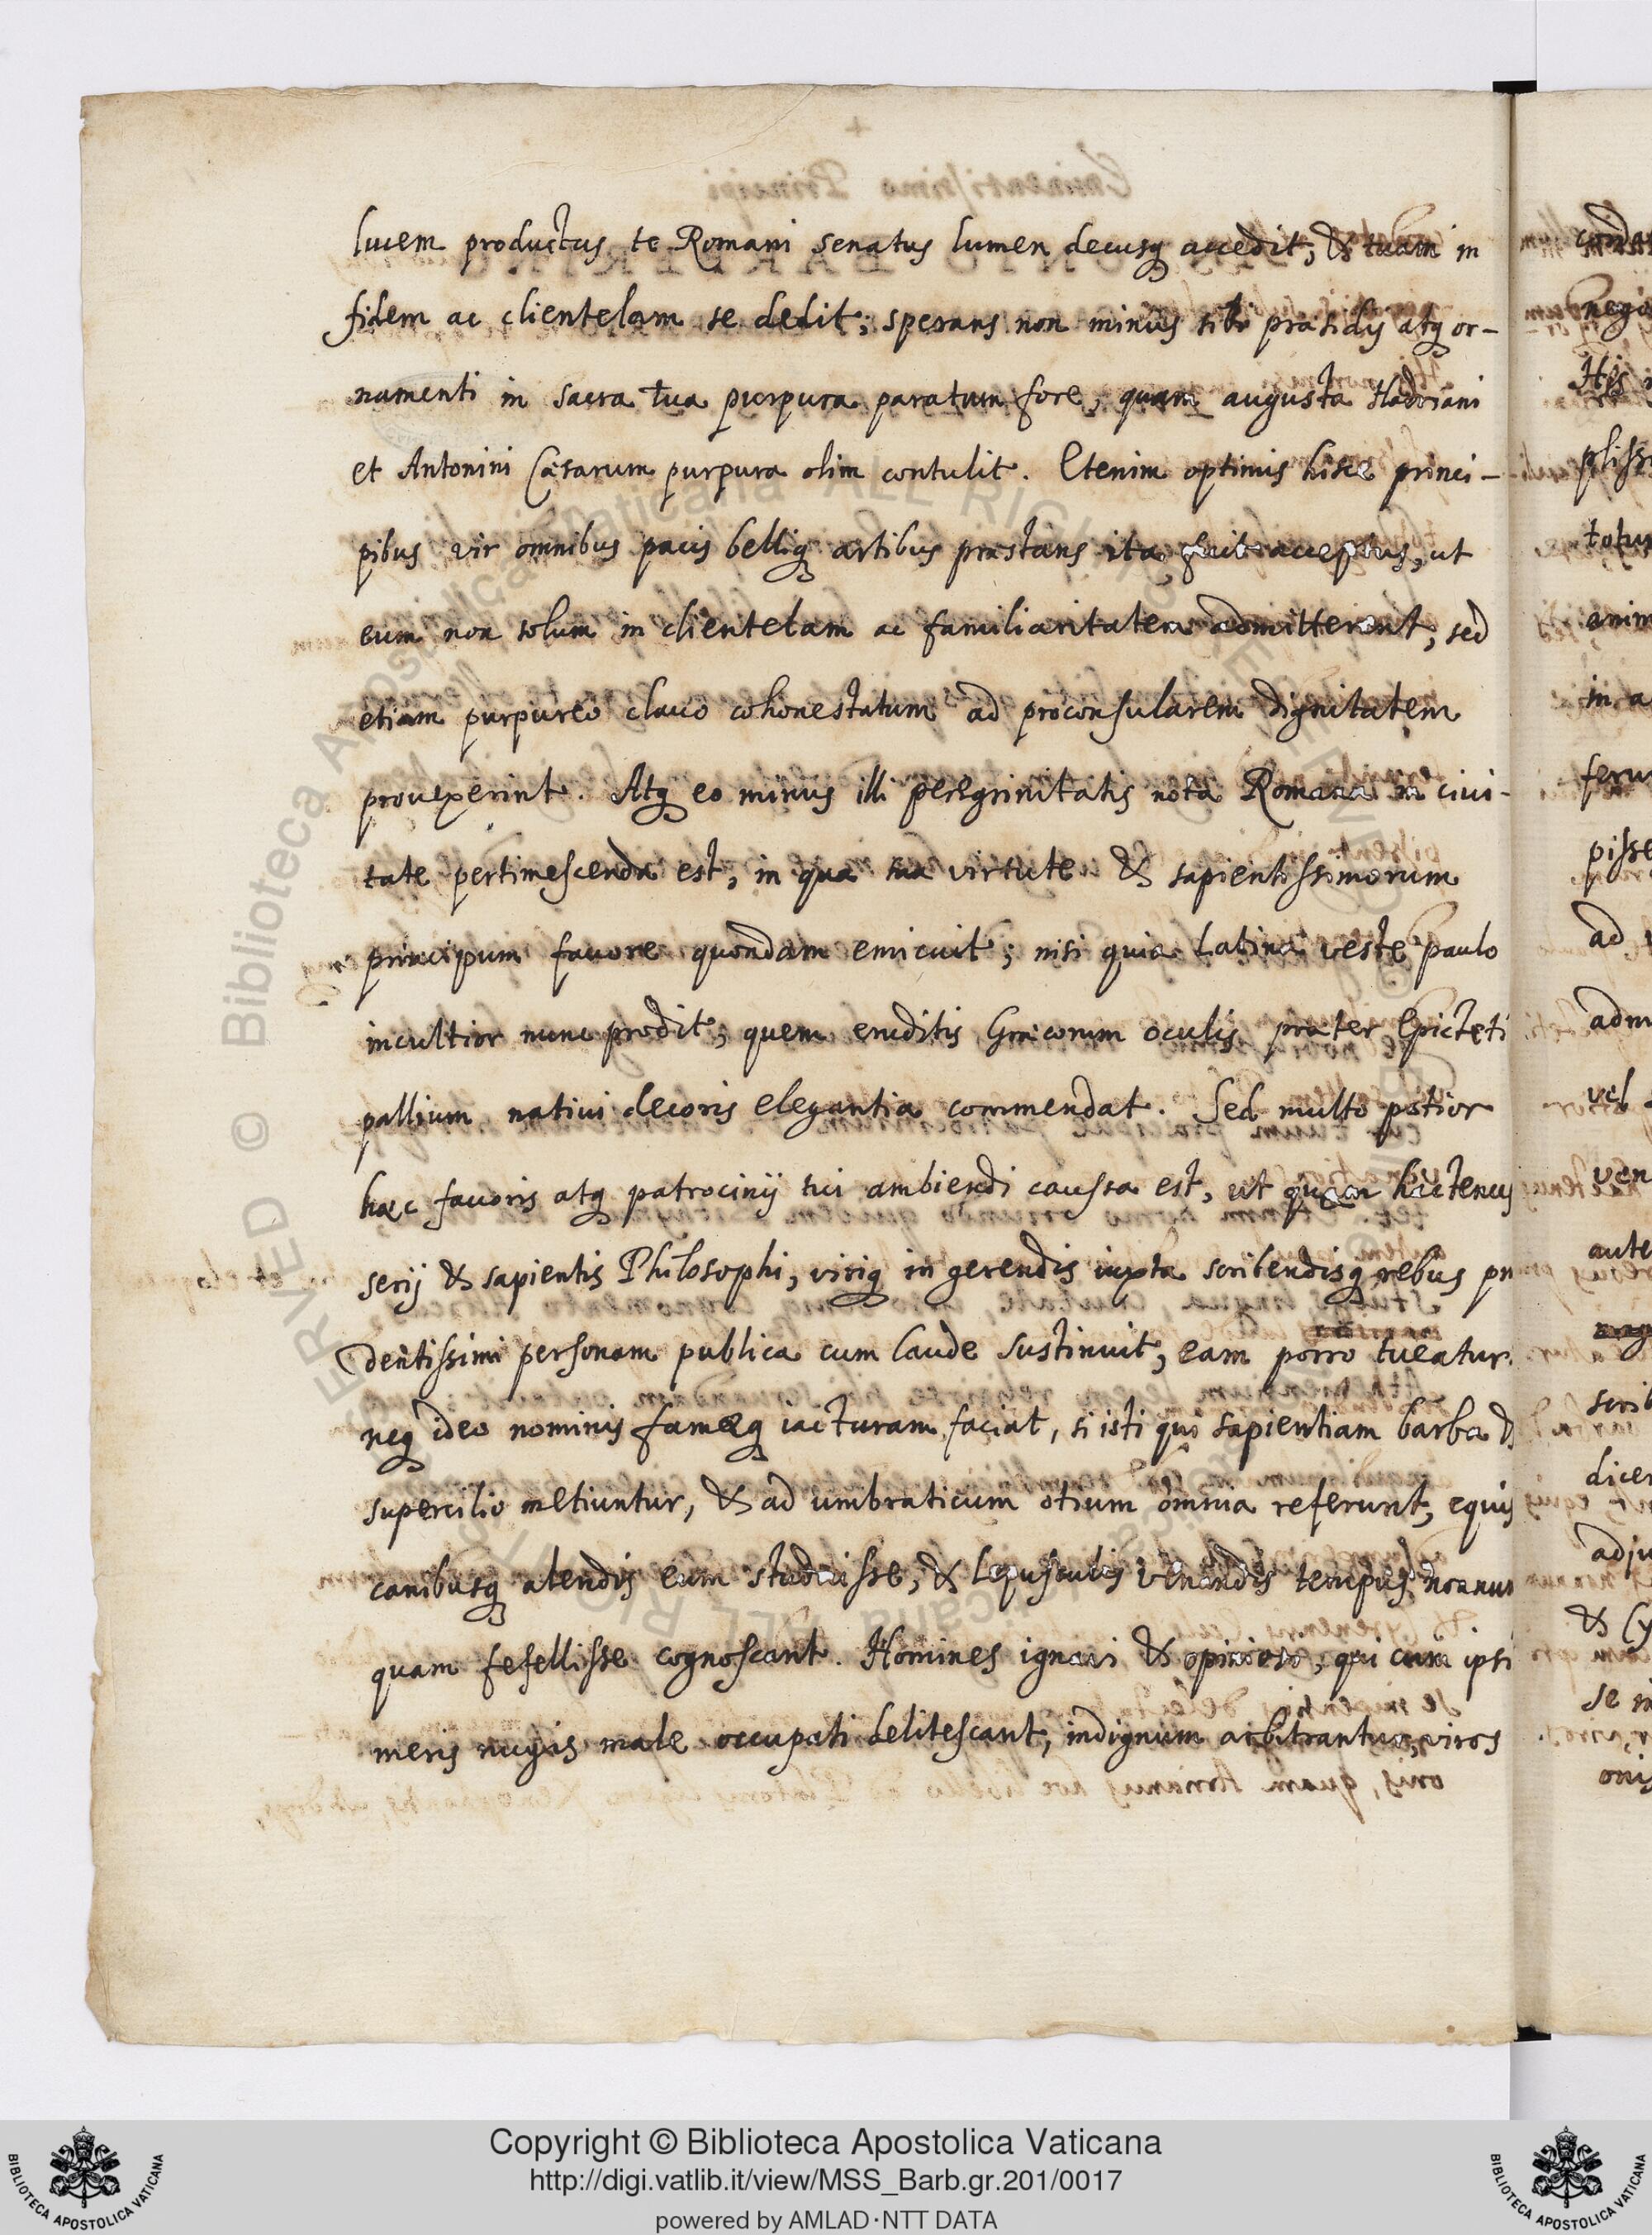 lucem productus te Romani senatus lumen decusq accedit, & tuam in
fidem ac clientelam se dedit; sperans non minus sibi præsidij atq or-
namenti in sacra tua purpura paratum fore, quam augusta Hadriani
et Antonini Cæsarum purpura olim contulit. Etenim optimis hisce princi-
pibus vir omnibus pacis belliq artibus præstans ita fuit acceptus, ut
eum non solum in clientelam ac familiaritatem admitterent, sed
etiam purpureo clavo cohonestatum ad proconsularem dignitatem
provexerint. Atq eo minus illi peregrinitatis nota Romana in civi-
tate pertimescenda est, in qua sua virtute & sapientissimorum
principum favore quondam emicuit; nisi quia Latina veste paulo
incultior nunc prodit, quem eruditis Græcorum oculis præter Epicteti
pallium nativi decoris elegantia commendat. Sed multo potior
hæc favoris atq patrocinij tui ambiendi caussa est, ut quam hactenus
serij & sapientis Philosophi, viriq in gerendis iuxta scribendisq rebus pru
dentissimi personam publica cum laude sustinuit, eam porro tueatur.
neq ideo nominis famæq iacturam faciat, si isti qui sapientiam barba &
supercilio metiuntur, & ad umbraticum otium omnia referunt, equis
canibusq alendis eum studuisse, & lepusculis venandis tempus nonnun
quam fefellisse cognoscant. Homines ignavi & qui cum ipsi
meris nugis male occupati delitescant, indignum arbitrantur, viros
Copyright © Biblioteca Apostolica Vaticana
http://digi.vatlib.it/view/MSS_Barb.gr.201/0017
powered by AMLAD·NTT DATA
BIBLIOTECA APOSTOLICA VATICANA
BIBLIOTECA APOSTOLICA VATICANA